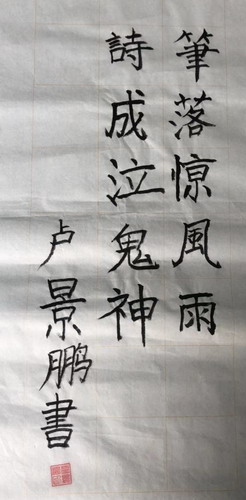 筆落惊風雨
詩成泣鬼神
卢景鹏書